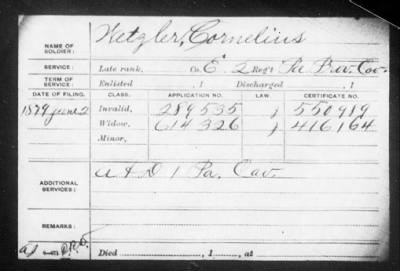 Wetzler, Cornelius
NAME OF
SOLDIER:
SERVICE: Late rank, Co. E, 2 Reg't Pa. Prov. Cav.
TERM OF
SERVICE: Enlisted , 1 Discharged , 1
DATE OF FILING. CLASS. APPLICATION NO. LAW. CERTIFICATE NO.
1879 June 2 Invalid, 289535 550919
Widow, 614326 416164
Minor,
ADDITIONAL
SERVICES:
A & D 1 Pa. Cav.
REMARKS:
Died , 1 , at